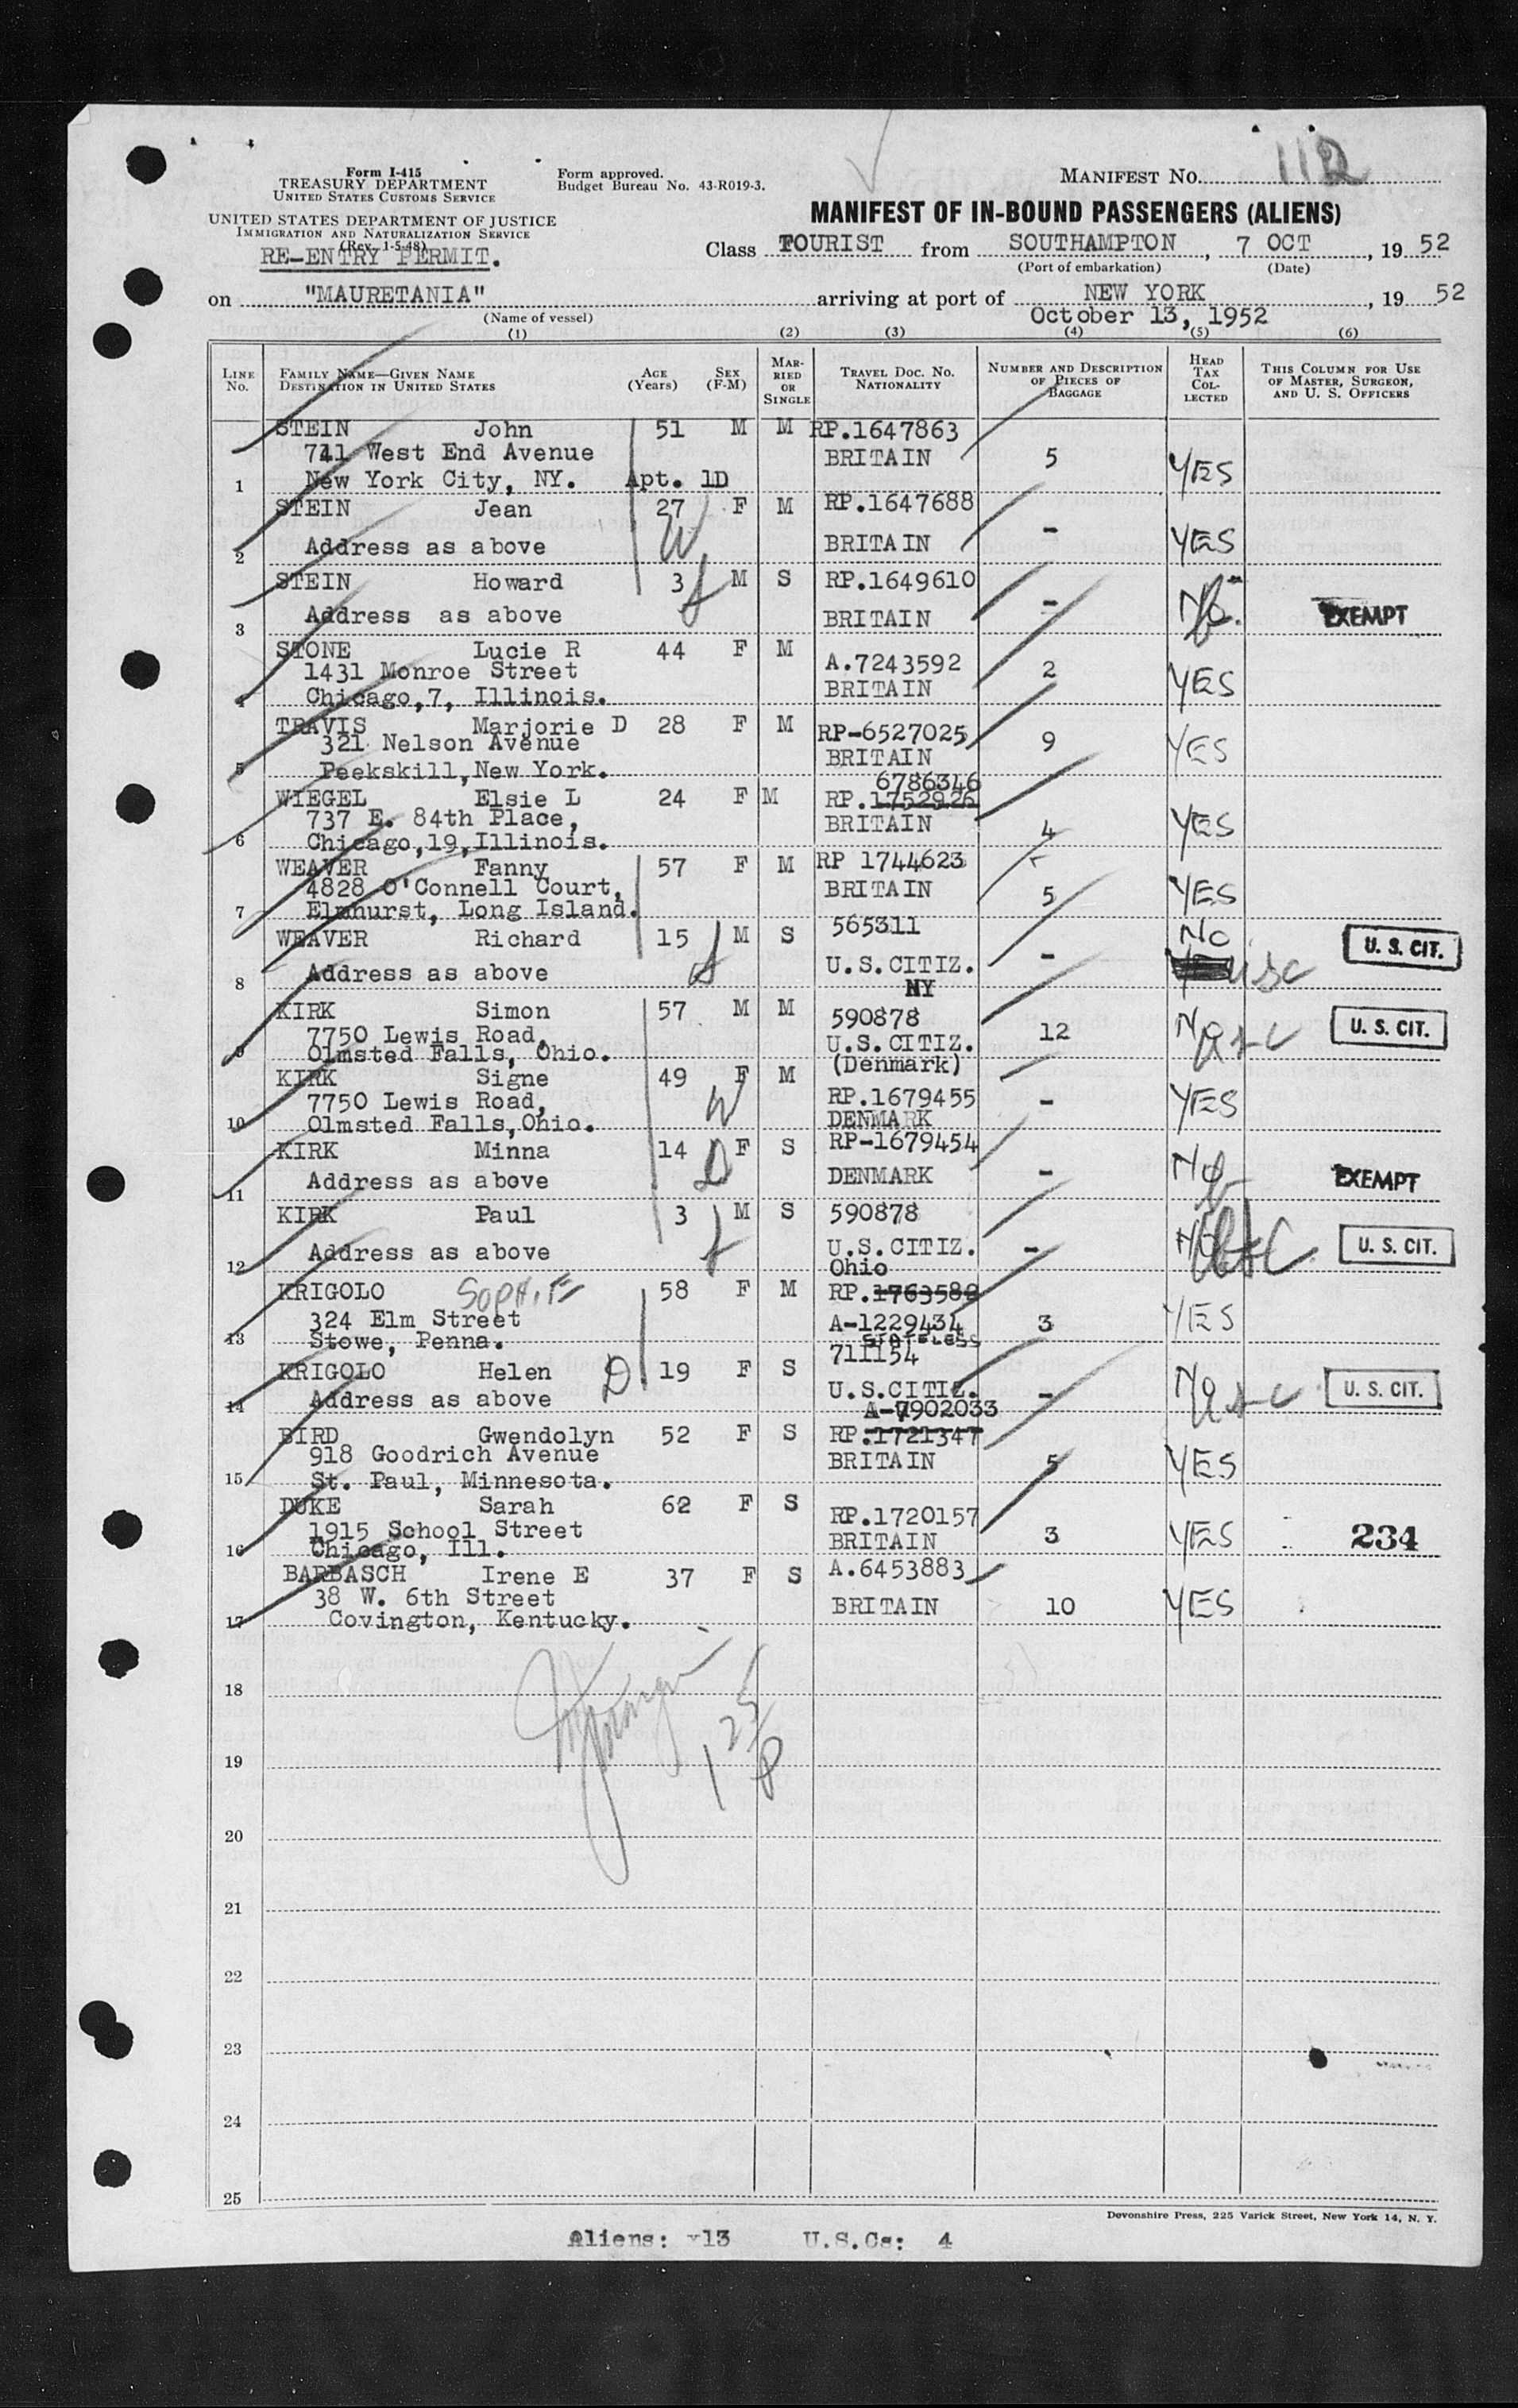 Form I-415
TREASURY DEPARTMENT
UNITED STATES CUSTOMS SERVICE
UNITED STATES DEPARTMENT OF JUSTICE
IMMIGRATION AND NATURALIZATION SERVICE
(Rev. 1-5-48)
RE-ENTRY PERMIT.
Form approved.
Budget Bureau No. 43-R019-3.
MANIFEST NO. 112
MANIFEST OF IN-BOUND PASSENGERS (ALIENS)
Class TOURIST from SOUTHAMPTON, 7 OCT, 1952
(Port of embarkation) (Date)
on "MAURETANIA" arriving at port of NEW YORK, 1952
(Name of vessel) October 13, 1952
(1) (2) (3) (4) (5) (6)
LINE No. FAMILY NAME—GIVEN NAME DESTINATION IN UNITED STATES AGE (Years) SEX (F-M) MARRIED OR SINGLE TRAVEL DOC. NO. NATIONALITY NUMBER AND DESCRIPTION OF PIECES OF BAGGAGE HEAD TAX COLLECTED THIS COLUMN FOR USE OF MASTER, SURGEON, AND U. S. OFFICERS
STEIN John 51 M M RP.1647863
741 West End Avenue BRITAIN 5 YES
1 New York City, NY. Apt. 1D
STEIN Jean 27 F M RP.1647688
W
2 Address as above BRITAIN - YES
STEIN Howard 3 M S RP.1649610
3 Address as above BRITAIN - No. EXEMPT
STONE Lucie R 44 F M A.7243592
1431 Monroe Street BRITAIN 2 YES
4 Chicago,7, Illinois.
TRAVIS Marjorie D 28 F M RP-6527025
321 Nelson Avenue BRITAIN 9 YES
5 Peekskill,New York.
6786346
WIEGEL Elsie L 24 F M RP.1752926
737 E. 84th Place, BRITAIN 4 YES
6 Chicago,19,Illinois.
WEAVER Fanny 57 F M RP 1744623
4828 O'Connell Court, BRITAIN 5 YES
7 Elmhurst, Long Island.
WEAVER Richard 15 M S 565311 No
8 Address as above U.S.CITIZ. - USC U. S. CIT.
NY
KIRK Simon 57 M M 590878
7750 Lewis Road, U.S. CITIZ. 12 No USC U. S. CIT.
9 Olmsted Falls, Ohio. (Denmark)
KIRK Signe 49 F M RP.1679455
W
7750 Lewis Road, DENMARK - YES
10 Olmsted Falls,Ohio.
KIRK Minna 14 F S RP-1679454
D
11 Address as above DENMARK - No EXEMPT
KIRK Paul 3 M S 590878
12 Address as above U.S.CITIZ. - No USC U. S. CIT.
Ohio
KRIGOLO SOPHIE 58 F M RP.1763582
324 Elm Street A-1229434 3 YES
13 Stowe, Penna. STATELESS
KRIGOLO Helen D 19 F S 711154
14 Address as above U.S.CITIZ. - No USC U. S. CIT.
A-7902033
BIRD Gwendolyn 52 F S RP.1721347
918 Goodrich Avenue BRITAIN 5 YES
15 St. Paul, Minnesota.
DUKE Sarah 62 F S RP.1720157
1915 School Street BRITAIN 3 YES 234
16 Chicago, Ill.
BARBASCH Irene E 37 F S A.6453883
38 W. 6th Street BRITAIN 10 YES
17 Covington, Kentucky.
18
19
20
21
22
23
24
25
Devonshire Press, 225 Varick Street, New York 14, N. Y.
Aliens: 13 U.S.Cs: 4